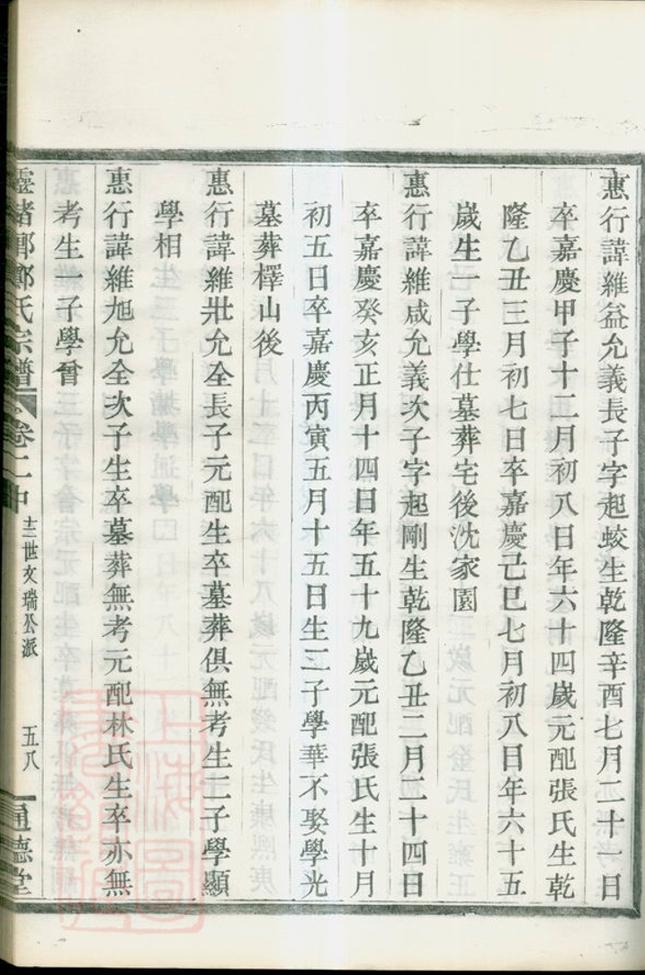 惠行諱維益允義長子字起蛟生乾隆辛酉七月二十一日
卒嘉慶甲子十二月初八日年六十四歲元配張氏生乾
隆乙丑三月初七日卒嘉慶己巳七月初八日年六十五
歲生一子學仕墓葬宅後沈家園
惠行諱維咸允義次子字起剛生乾隆乙丑二月二十四日
卒嘉慶癸亥正月十四日年五十九歲元配張氏生十月
初五日卒嘉慶丙寅五月十五日生二子學華不娶學光
墓葬檡山後
惠行諱維壯允全長子元配生卒墓葬俱無考生二子學顯
學相
惠行諱維旭允全次子生卒墓葬無考元配林氏生卒亦無
考生一子學曾
靈緒鄭氏宗譜 卷二中 十三世文瑞公派 五八 通德堂